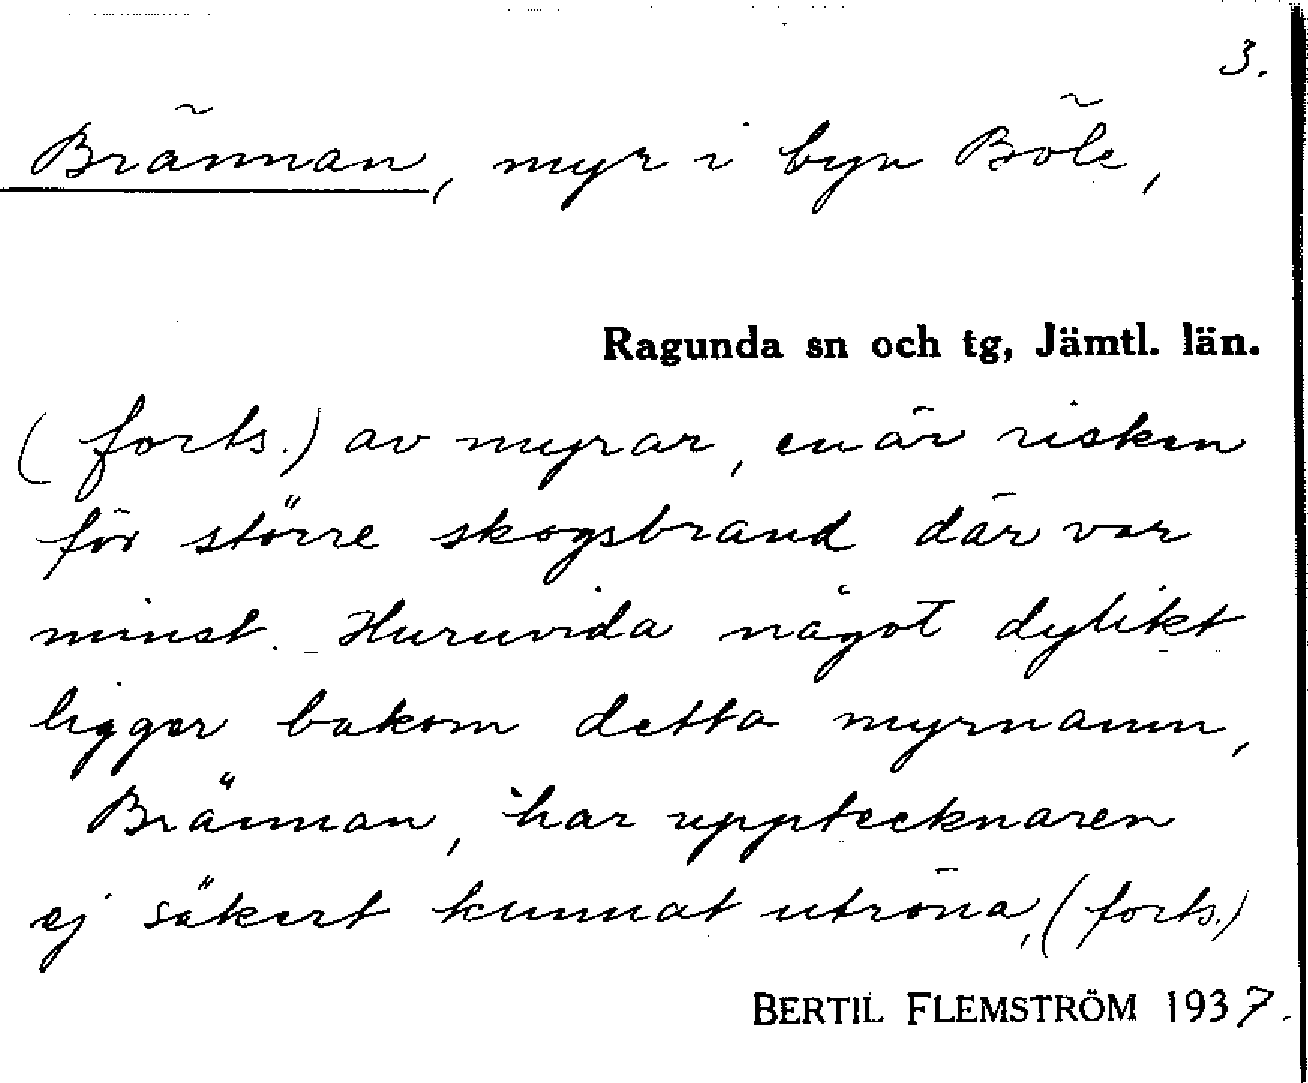 3.
Brännan, myr i byn Böle,
Ragunda sn och tg, Jämtl. län.
(forts.) av myrar, enär risken
för större skogsbrand där var
minst. Huruvida något dylikt
ligger bakom detta myrnamn,
Brännan, har upptecknaren
ej säkert kunnat utröna, (forts.)
BERTIL FLEMSTRÖM 1937.